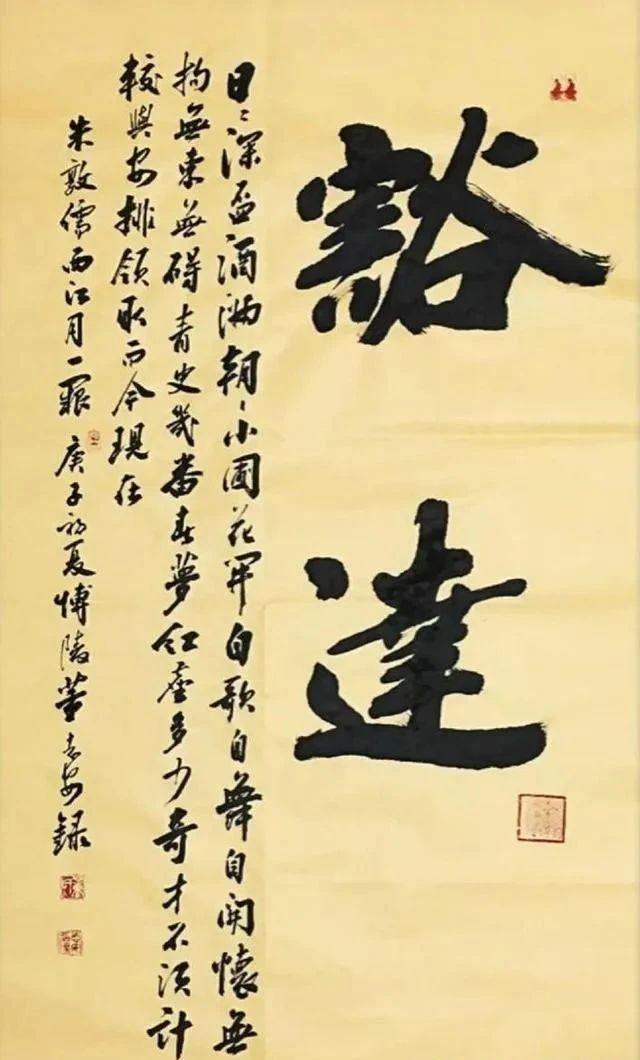 豁達
日〻深盃酒滿朝〻小圃花開自歌自舞自開懷無
拘無束無碍青史幾番春夢紅塵多少奇才不須計
較與安排領取而今現在
朱敦儒西江月一闋 庚子初夏博陵董安録